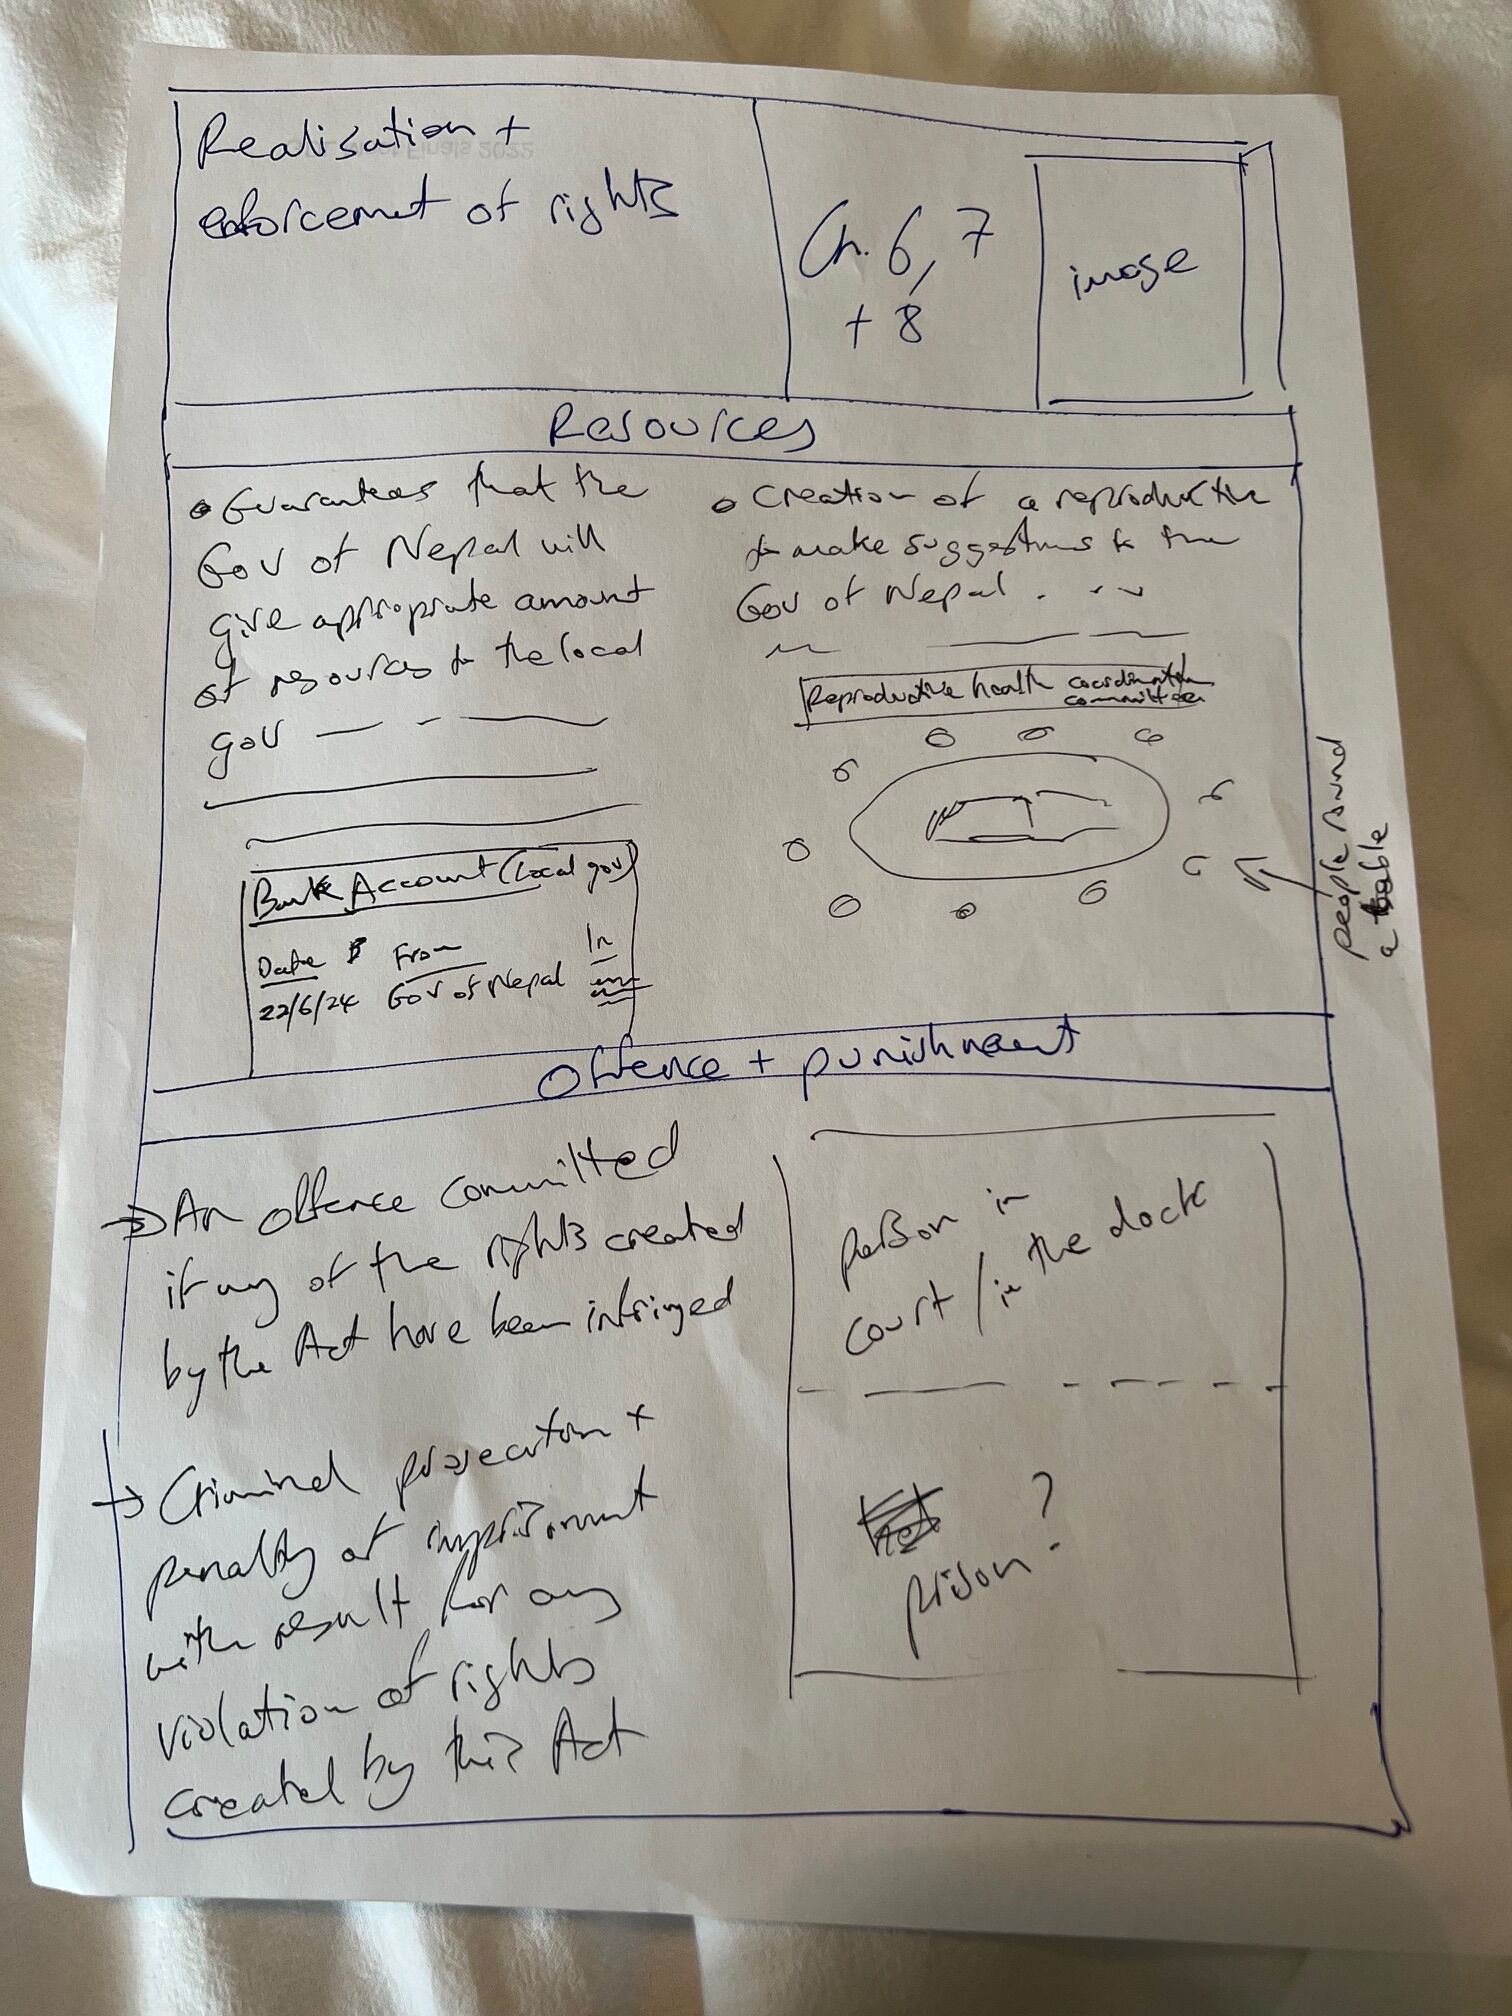 Realisation +
enforcement of rights
Ch. 6, 7
+ 8
image
Resources
Guarantees that the
Gov of Nepal will
give appropriate amount
of resources to the local
gov
Bank Account (local gov)
Date From In
22/6/24 Gov of Nepal
Creation of a reproductive
to make suggestions to the
Gov of Nepal . . .
Reproductive health coordination
committee
people round
a table
Offence + punishment
→ An offence committed
if any of the rights created
by the Act have been infringed
→ Criminal prosecution +
penalty of imprisonment
with result for any
violation of rights
created by this Act
person in
court / in the dock
prison ?
Finals 2022